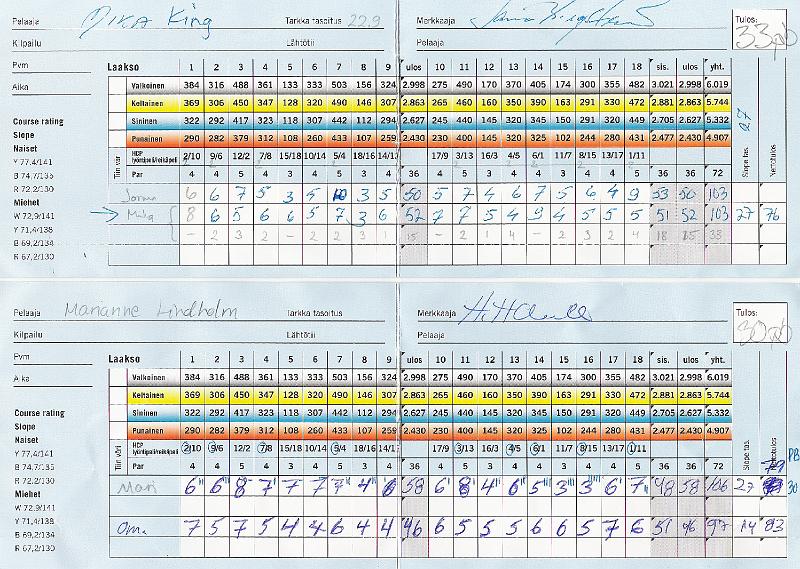 Pelaaja MIKA King Tarkka tasoitus 22.9 Merkkaaja Tulos:
Kilpailu Lähtötii Pelaaja 33 pb
Pvm Laakso 1 2 3 4 5 6 7 8 9 ulos 10 11 12 13 14 15 16 17 18 sis. ulos yht.
Aika Valkoinen 384 316 488 361 133 333 503 156 324 2.998 275 490 170 370 405 174 300 355 482 3.021 2.998 6.019
Keltainen 369 306 450 347 128 320 490 146 307 2.863 265 460 160 350 390 163 291 330 472 2.881 2.863 5.744
Course rating Sininen 322 292 417 323 118 307 442 112 294 2.627 245 440 145 320 345 150 291 320 449 2.705 2.627 5.332
Slope Punainen 290 282 379 312 108 260 433 107 259 2.430 230 400 145 320 325 102 244 280 431 2.477 2.430 4.907
Naiset
Y 77.4/141 Tiin väri HCP lyöntipeli/reikäpeli 2/10 9/6 12/2 7/8 15/18 10/14 5/4 18/16 14/1 17/9 3/13 16/3 4/5 6/1 11/7 8/15 13/17 1/11 Slope tas. Nettotulos
B 74,7/135 Par 4 4 5 4 3 4 5 3 4 36 4 5 3 4 4 3 4 4 5 36 36 72
R 72.2/130 Jorma 6 6 7 5 3 5 10 3 5 50 5 7 4 6 7 5 6 4 9 53 50 103
Miehet
W 72,9/141 Mika 8 6 5 6 6 5 7 3 6 52 7 7 5 4 9 4 5 5 5 51 52 103 27 76
Y 71,4/138 - 2 3 2 - 2 2 3 1 15 - 2 1 4 - 2 3 2 4 18 15 33
B 69,2/134
R 67,2/130
Pelaaja Marianne Lindholm Tarkka tasoitus Merkkaaja Tulos:
Kilpailu Lähtötii Pelaaja 30 pb
Pvm Laakso 1 2 3 4 5 6 7 8 9 ulos 10 11 12 13 14 15 16 17 18 sis. ulos yht.
Aika Valkoinen 384 316 488 361 133 333 503 156 324 2.998 275 490 170 370 405 174 300 355 482 3.021 2.998 6.019
Keltainen 369 306 450 347 128 320 490 146 307 2.863 265 460 160 350 390 163 291 330 472 2.881 2.863 5.744
Course rating Sininen 322 292 417 323 118 307 442 112 294 2.627 245 440 145 320 345 150 291 320 449 2.705 2.627 5.332
Slope Punainen 290 282 379 312 108 260 433 107 259 2.430 230 400 145 320 325 102 244 280 431 2.477 2.430 4.907
Naiset
Y 77,4/141 Tiin väri HCP lyöntipeli/reikäpeli 2/10 9/6 12/2 7/8 15/18 10/14 5/4 18/16 14/1 17/9 3/13 16/3 4/5 6/1 11/7 8/15 13/17 1/11 Slope tas. Nettotulos
B 74,7/135 Par 4 4 5 4 3 4 5 3 4 36 4 5 3 4 4 3 4 4 5 36 36 72 79 PB
R 72.2/130 Mari 6 6 8 7 7 7 7 4 6 58 6 8 4 6 5 3 3 6 7 48 58 106 27 30
Miehet
W 72,9/141
Y 71,4/138 Oma 7 5 7 5 4 4 6 4 4 46 6 5 5 5 6 6 5 7 6 51 46 97 14 83
B 69,2/134
R 67,2/130